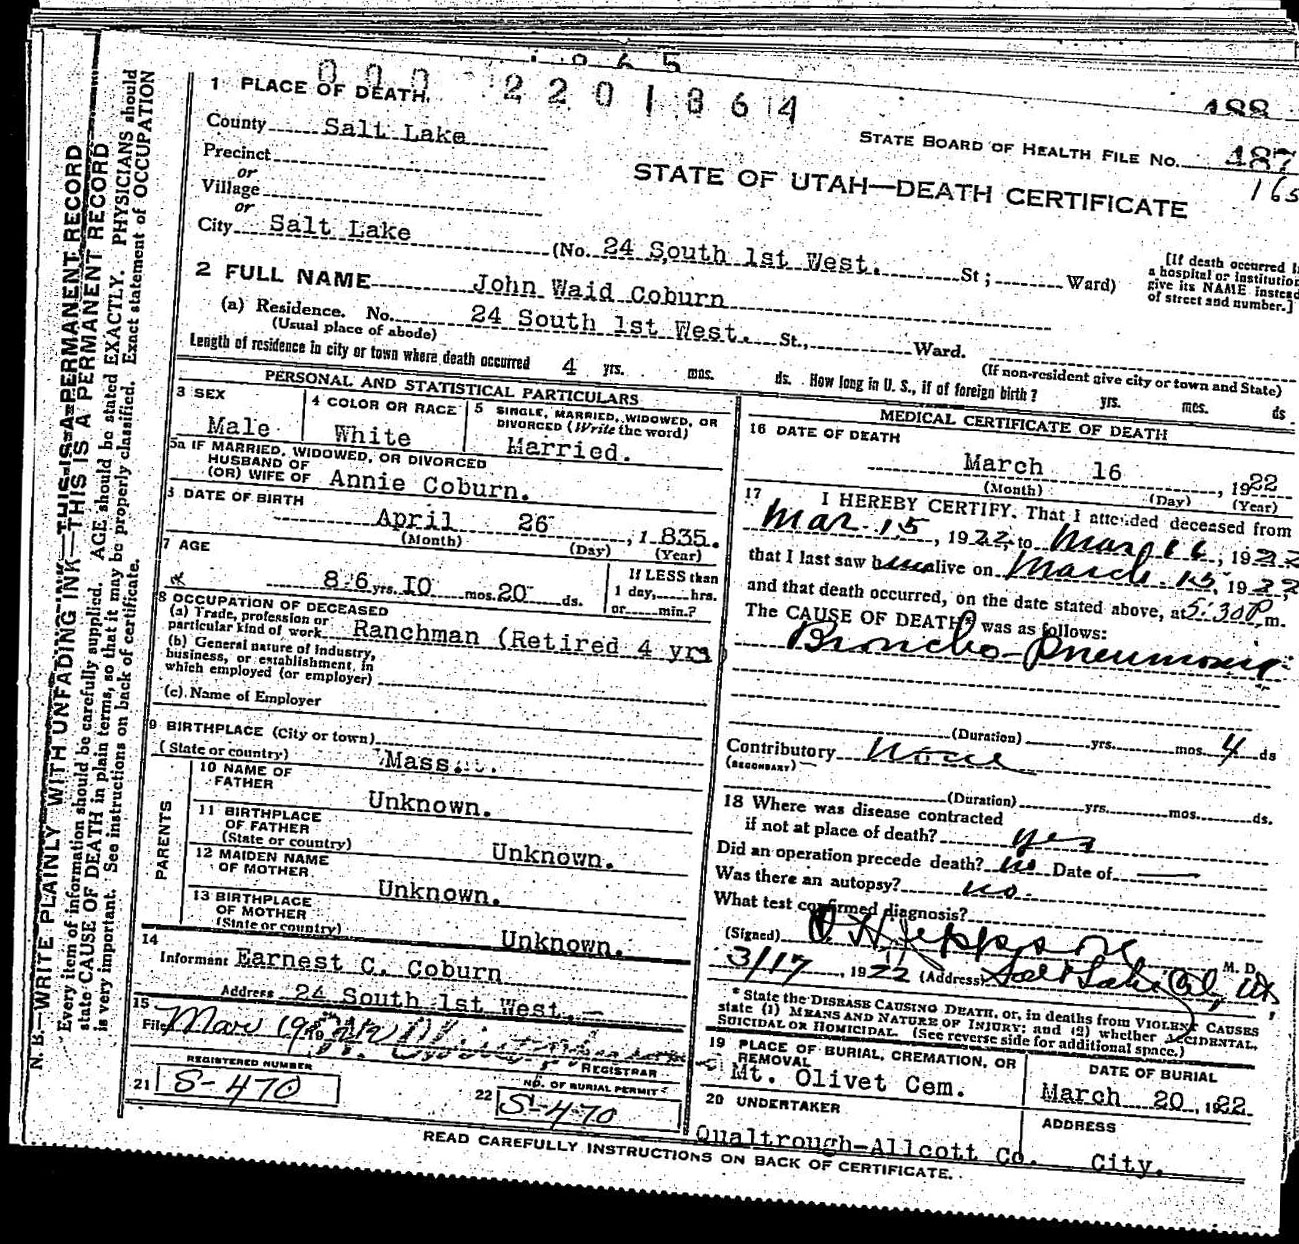 000 2201864
1 PLACE OF DEATH.
488
County Salt Lake
STATE BOARD OF HEALTH FILE No. 487
Precinct
or
STATE OF UTAH—DEATH CERTIFICATE
Village
or
City Salt Lake (No. 24 South 1st West. St; Ward)
[If death occurred
a hospital or institution
give its NAME instead
of street and number.]
2 FULL NAME John Waid Coburn
(a) Residence. No. 24 South 1st West. St., Ward.
(Usual place of abode)
(If non-resident give city or town and State)
Length of residence in city or town where death occurred 4 yrs. mos. ds. How long in U. S., if of foreign birth? yrs. mos. ds
PERSONAL AND STATISTICAL PARTICULARS
3 SEX
Male
4 COLOR OR RACE
White
5 SINGLE, MARRIED, WIDOWED, OR
DIVORCED (Write the word)
Married.
5a IF MARRIED, WIDOWED, OR DIVORCED
HUSBAND OF
(OR) WIFE OF Annie Coburn.
DATE OF BIRTH
April 26 , 1835.
(Month) (Day) (Year)
7 AGE
86 yrs. 10 mos. 20 ds.
If LESS than
1 day, hrs.
or min.?
8 OCCUPATION OF DECEASED
(a) Trade, profession or
particular kind of work Ranchman (Retired 4 yrs)
(b) General nature of industry,
business, or establishment in
which employed (or employer)
(c) Name of Employer
9 BIRTHPLACE (City or town)
(State or country) Mass.
PARENTS
10 NAME OF
FATHER Unknown.
11 BIRTHPLACE
OF FATHER
(State or country) Unknown.
12 MAIDEN NAME
OF MOTHER Unknown.
13 BIRTHPLACE
OF MOTHER
(State or country) Unknown.
14
Informant Earnest C. Coburn
Address 24 South 1st West.
15
File Mar 19
REGISTRAR
REGISTERED NUMBER
21 S-470
NO. OF BURIAL PERMIT
22 S-470
MEDICAL CERTIFICATE OF DEATH
16 DATE OF DEATH
March 16 , 1922
(Month) (Day) (Year)
17 I HEREBY CERTIFY. That I attended deceased from
Mar 15 , 1922, to Mar 16, 1922
that I last saw him alive on March 15, 1922
and that death occurred, on the date stated above, at 5:30P m.
The CAUSE OF DEATH* was as follows:
Broncho-Pneumonia
(Duration) yrs. mos. 4 ds
Contributory None
(SECONDARY)
(Duration) yrs. mos. ds.
18 Where was disease contracted
if not at place of death? yes
Did an operation precede death? no Date of —
Was there an autopsy? no.
What test confirmed diagnosis?
(Signed) M. D.
3/17 , 1922 (Address) Salt Lake City, Ut
* State the DISEASE CAUSING DEATH, or, in deaths from VIOLENT CAUSES
state (1) MEANS AND NATURE OF INJURY; and (2) whether ACCIDENTAL,
SUICIDAL OR HOMICIDAL. (See reverse side for additional space.)
19 PLACE OF BURIAL, CREMATION, OR
REMOVAL
Mt. Olivet Cem.
DATE OF BURIAL
March 20, 1922
20 UNDERTAKER
Qualtrough-Allcott Co.
ADDRESS
City.
READ CAREFULLY INSTRUCTIONS ON BACK OF CERTIFICATE.
N. B.—WRITE PLAINLY WITH UNFADING INK—THIS IS A PERMANENT RECORD
Every item of information should be carefully supplied. AGE should be stated EXACTLY. PHYSICIANS should
state CAUSE OF DEATH in plain terms, so that it may be properly classified. Exact statement of OCCUPATION
is very important. See instructions on back of certificate.